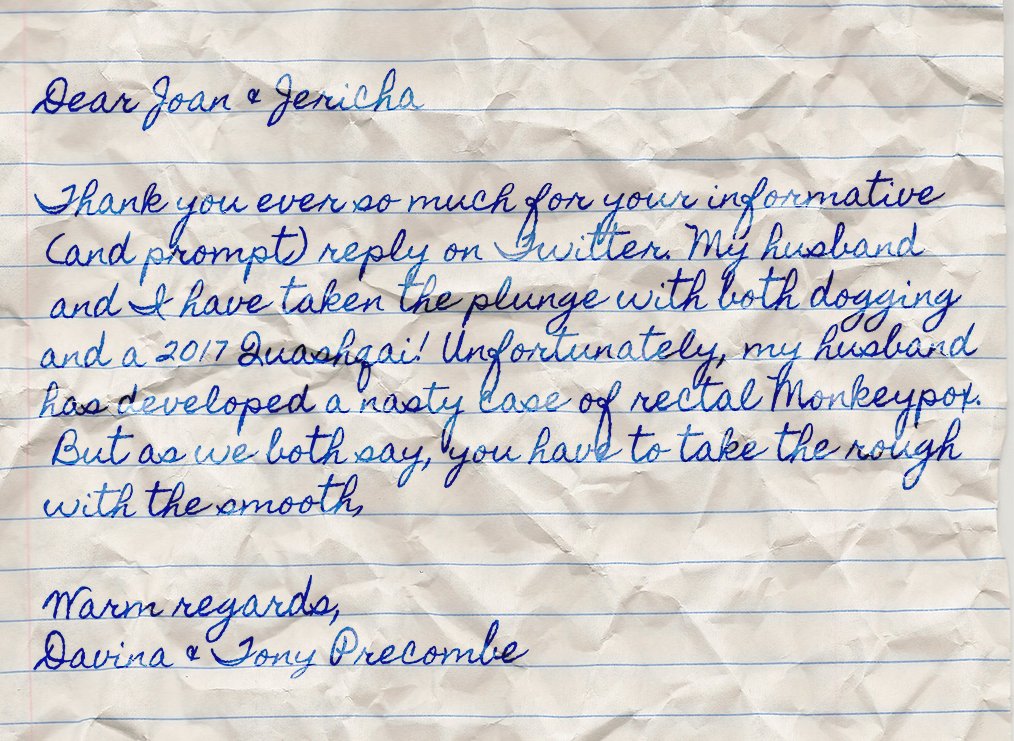 Dear Joan & Jericha
Thank you ever so much for your informative
(and prompt) reply on Twitter. My husband
and I have taken the plunge with both dogging
and a 2017 Quashqai! Unfortunately, my husband
has developed a nasty case of rectal Monkeypox.
But as we both say, you have to take the rough
with the smooth,
Warm regards,
Davina & Tony Precombe